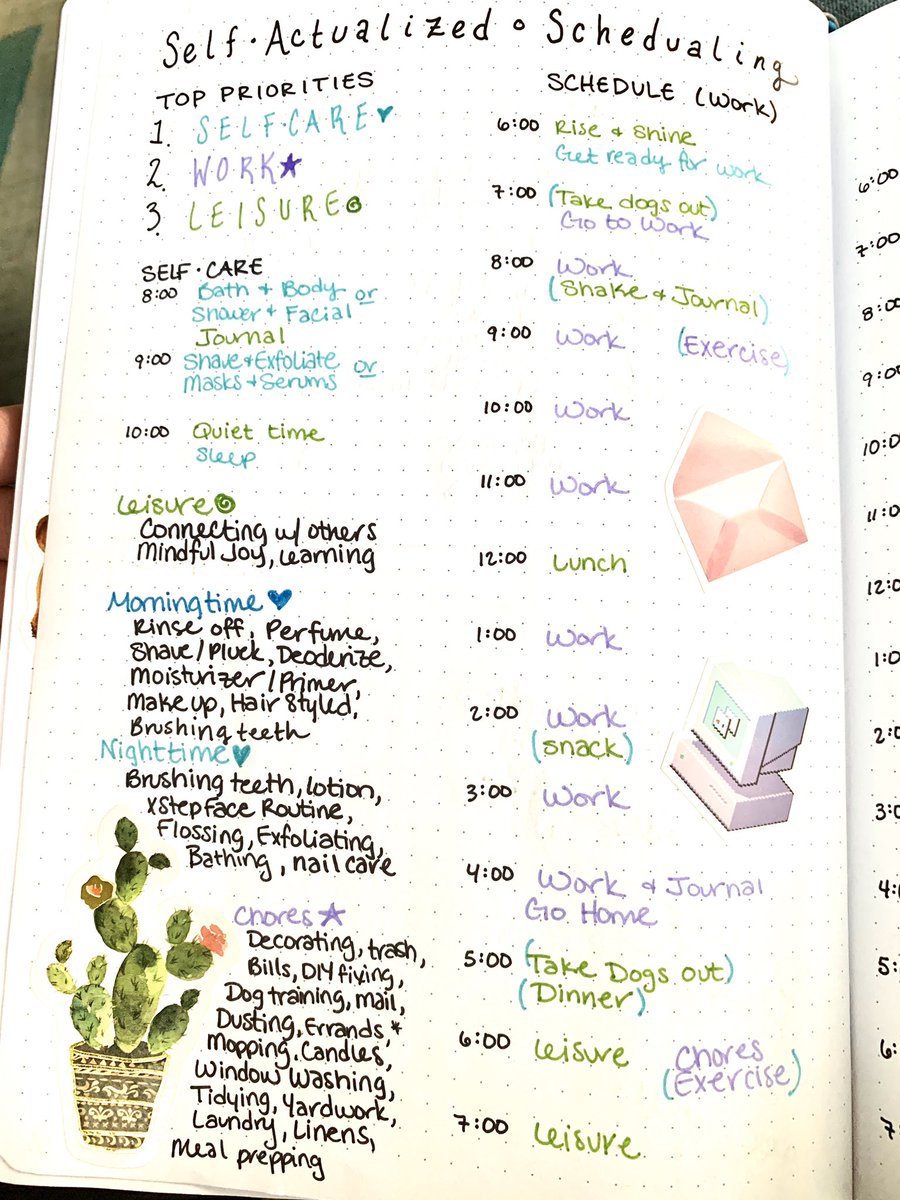 Self • Actualized • Schedualing
TOP PRIORITIES
1. SELF-CARE
2. WORK
3. LEISURE
SELF • CARE
8:00 Bath + Body or
Shower + Facial
Journal
9:00 Shave + Exfoliate or
Masks + Serums
10:00 Quiet time
Sleep
Leisure
Connecting w/ others
Mindful Joy, Learning
Morningtime
Rinse off, Perfume,
Shave/Pluck, Deoderize,
Moisturizer/Primer,
Makeup, Hair Styled,
Brushing teeth
Nighttime
Brushing teeth, lotion,
XStep Face Routine,
Flossing, Exfoliating,
Bathing, nail care
Chores
Decorating, trash,
Bills, DIY fixing,
Dog training, mail,
Dusting, Errands, *
Mopping, Candles,
Window Washing,
Tidying, Yardwork,
Laundry, Linens,
Meal prepping
SCHEDULE (Work)
6:00 Rise & Shine
Get ready for work
7:00 (Take dogs out)
Go to Work
8:00 Work
(Shake & Journal)
9:00 Work (Exercise)
10:00 Work
11:00 Work
12:00 Lunch
1:00 Work
2:00 Work
(snack)
3:00 Work
4:00 Work & Journal
Go Home
5:00 (Take Dogs out)
(Dinner)
6:00 Leisure Chores
(Exercise)
7:00 Leisure
6:00
7:00
8:00
9:00
10:0
11:0
12:0
1:0
2:0
3:0
4:
5:
6:
7